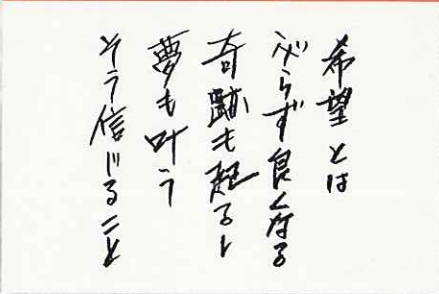 希望とは
必らず良くなる
奇跡も起ると
夢も叶う
そう信じること